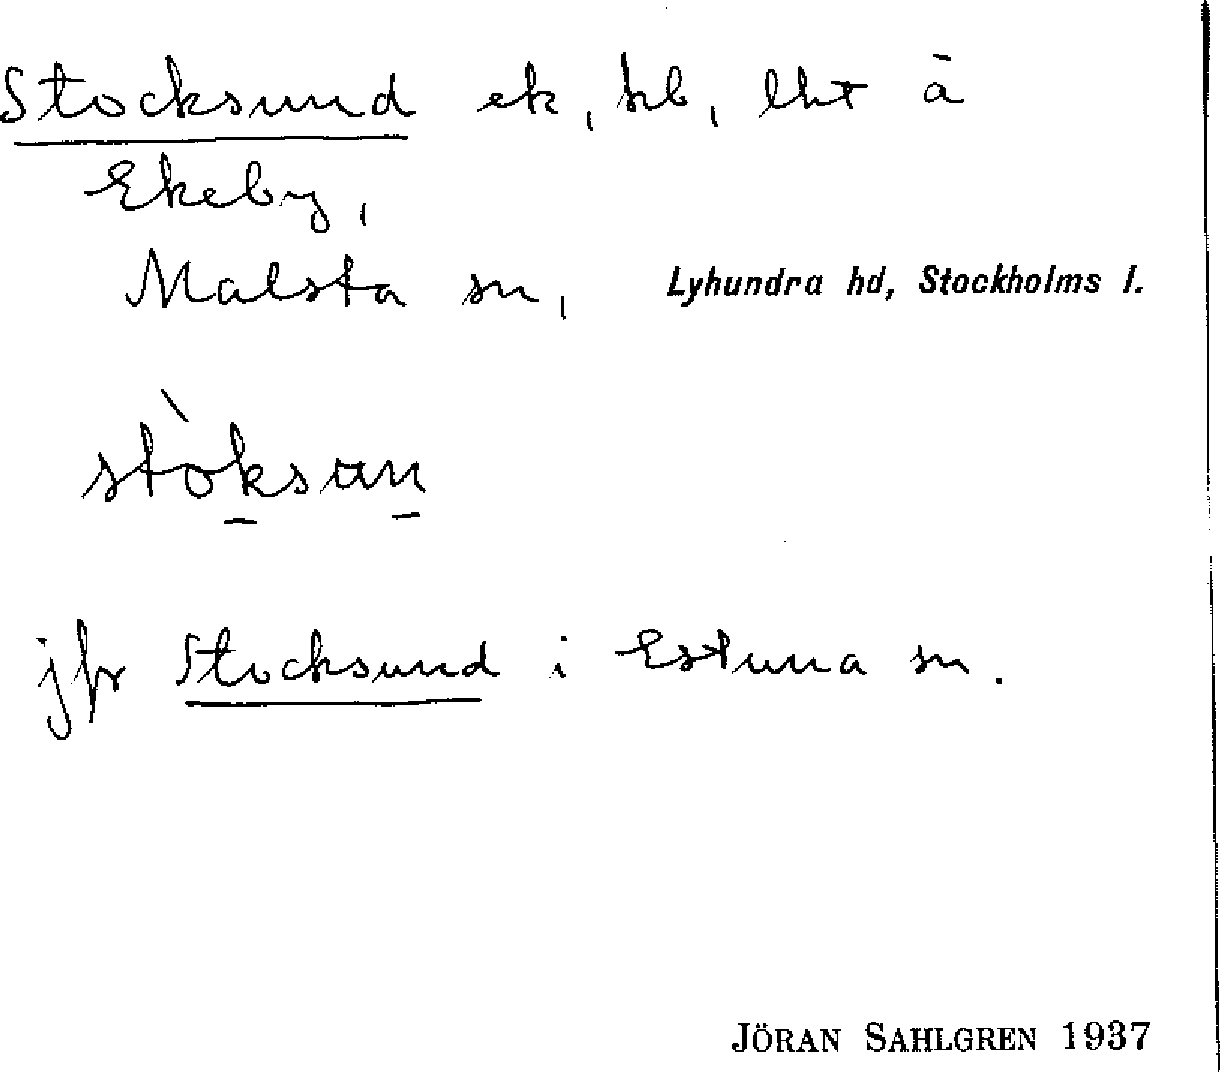 Stocksund ek, hl, lht å
Ekeby,
Malsta sn, Lyhundra hd, Stockholms l.
stòksun
jfr Stocksund i Estuna sn.
JÖRAN SAHLGREN 1937